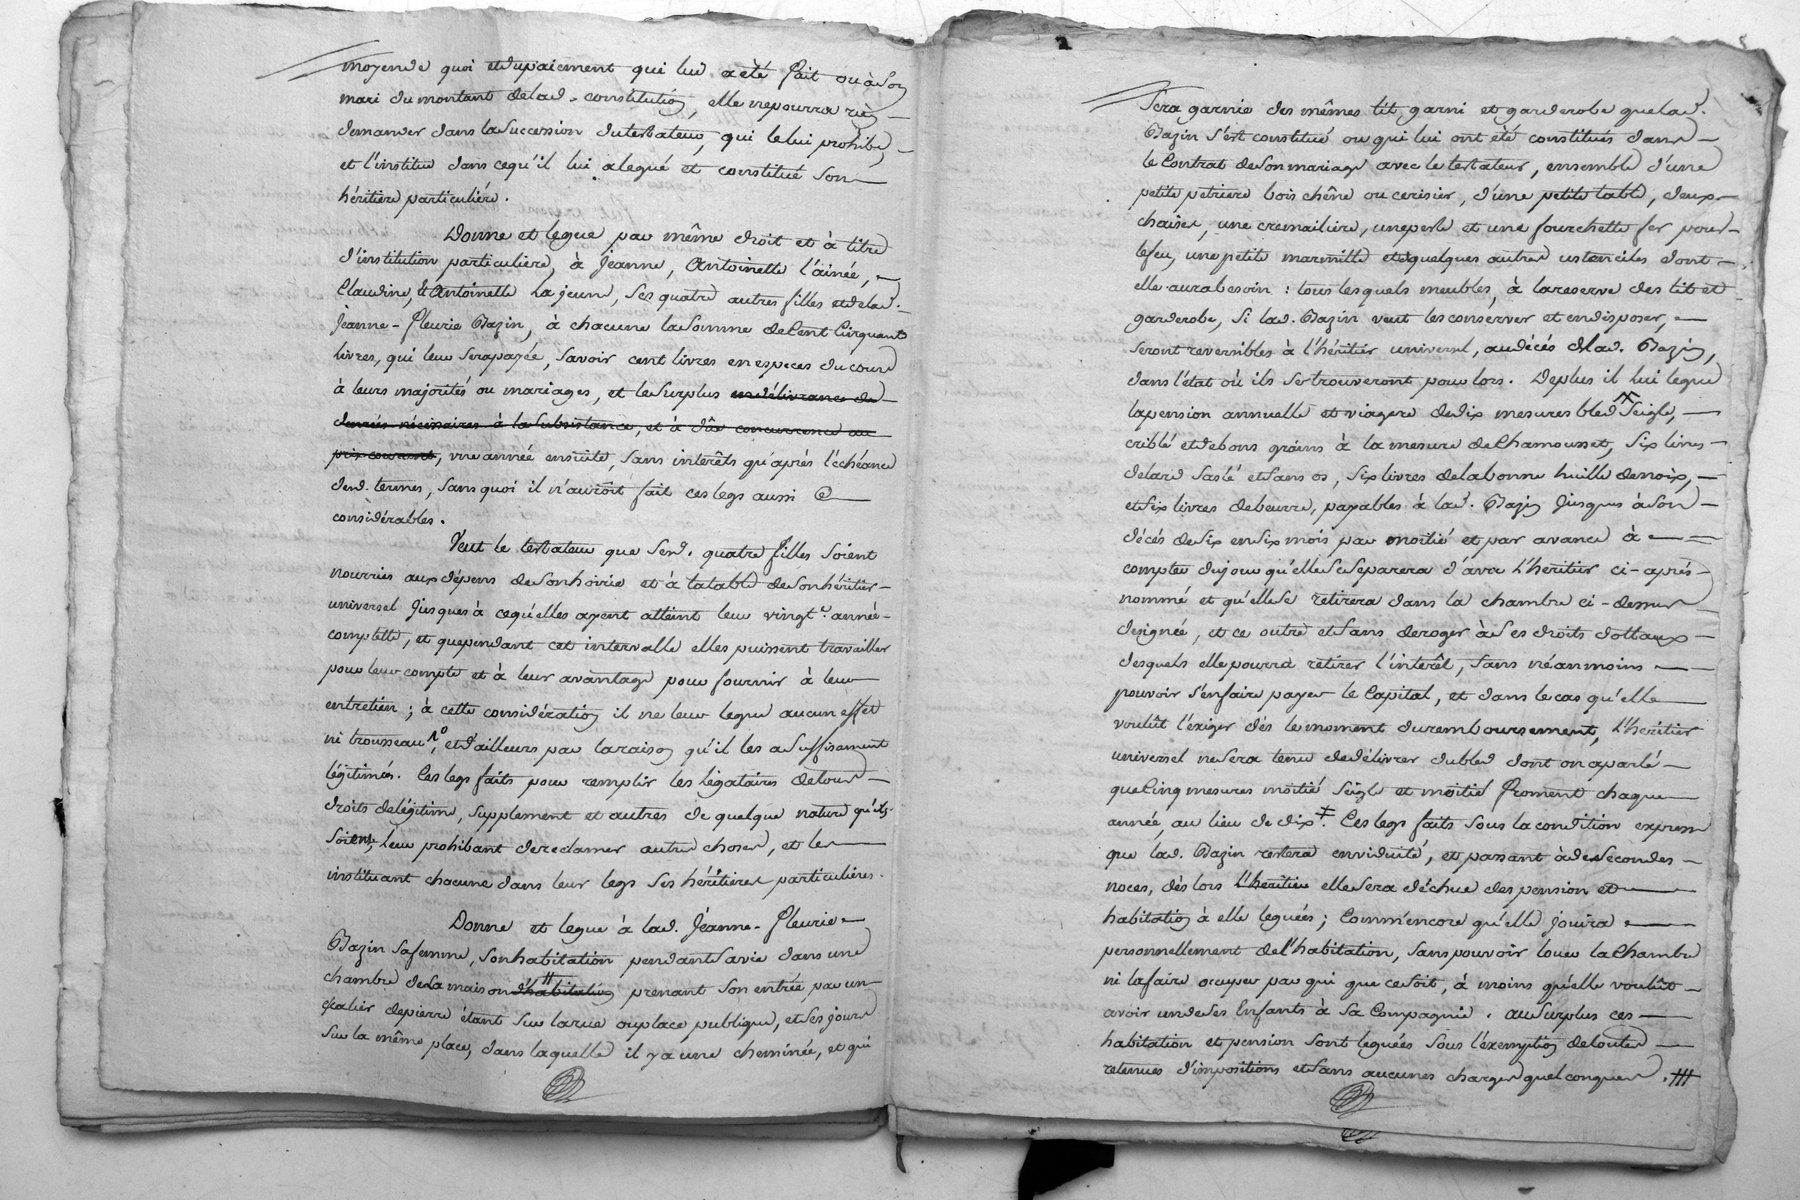 moyende quoi et dupaiement qui lui a été fait ou à son
mari du montant de lad. constitution, elle ne pourra rien
demander dans la succession du testateur, qui le lui prohibe,
et l'institue dans cequ'il lui a legué et constitué son
héritiere particuliére.
Donne et legue par même droit et à titre
d'institution particuliere, à Jeanne, Antoinette l'ainée,
Claudine, & Antoinette la jeune, ses quatre autres filles et de lad.
Jeanne-Fleurie Bazin, à chacune la somme de Cent Cinquante
livres, qui leur sera payée, savoir cent livres en especes du cours
à leurs majorités ou mariages, et le surplus en délivrance de
denrées nécessaires à la subsistance, et à dûe concurrence au
prix courant, une année ensuite, sans interêts qu'après l'échéance
desd. termes, sans quoi il n'auroit fait ces legs aussi
considérables.
Veut le testateur que sesd. quatre filles soient
nourries aux dépens de son hoirie et à la table de son héritier
universel jusques à cequ'elles ayent atteint leur vingt.e année
complette, et que pendant cet intervalle elles puissent travailler
pour leur compte et à leur avantage pour fournir à leur
entretien; à cette considération il ne leur legue aucun effet
ni trousseau, et d'ailleurs par la raison qu'il les a suffisament
légitimés. Ces legs faits pour remplir les légataires de tous
droits de légitime, supplement et autres de quelque nature qu'ils
soient, leur prohibant de reclamer autres choses, et les
instituant chacune dans leur legs ses héritieres particulieres.
Donne et legue à lad. Jeanne-Fleurie
Bazin sa femme, son habitation pendant sa vie dans une
chambre de la maison d'habitation # prenant son entrée par un
escalier de pierre étant sur la rue ou place publique, et ses jours
sur la même place, dans laquelle il y a une cheminée, et qui
sera garnie des mêmes lit, garni et garderobe que lad.
Bazin s'est constitué ou qui lui ont été constitués dans
le Contrat de son mariage avec le testateur, ensemble d'une
petite petriere bois chêne ou cerisier, d'une petite table, deux
chaises, une cremailiere, une perle et une fourchette fer pour
le feu, une petite marmitte et quelques autres ustenciles dont
elle aura besoin: tous lesquels meubles, à la reserve des lit et
garderobe, si lad. Bazin veut les conserver et en disposer,
seront reversibles à l'héritier universel, au décés de lad. Bazin,
dans l'état où ils se trouveront pour lors. Deplus il lui legue
la pension annuelle et viagere de dix mesures bled seigle,
criblé et de bons grains à la mesure de Chamousset, six livres
de lard salé et sans os, six livres de la bonne huille de noix,
et six livres de beurre, payables à lad. Bazin jusques à son
décés de six en six mois par moitié et par avance à
compter du jour qu'elle se separera d'avec l'héritier ci-après
nommé et qu'elle se retirera dans la chambre ci-dessus
designée, et ce outre et sans deroger à ses droits dottaux
desquels elle pourra retirer l'interêt, sans néanmoins
pouvoir s'en faire payer le Capital, et dans le cas qu'elle
voulût l'exiger dès le moment du remboursement, l'héritier
universel ne sera tenu de délivrer du bled dont on a parlé
que Cinq mesures moitié seigle et moitié froment chaque
année, au lieu de dix. Ces legs faits sous la condition expresse
que lad. Bazin restera en viduité, et passant à de secondes
noces, dès lors l'héritier elle sera déchue des pension et
habitation à elle leguées; Comm'encore qu'elle jouira
personnellement de l'habitation, sans pouvoir louer la Chambre
ni la faire occuper par qui que ce soit, à moins qu'elle voulût
avoir un de ses Enfants à sa Compagnie. au surplus ces
habitation et pension sont leguées sous l'exemption de toutes
retenues d'impositions et sans aucunes charges quelconques. #